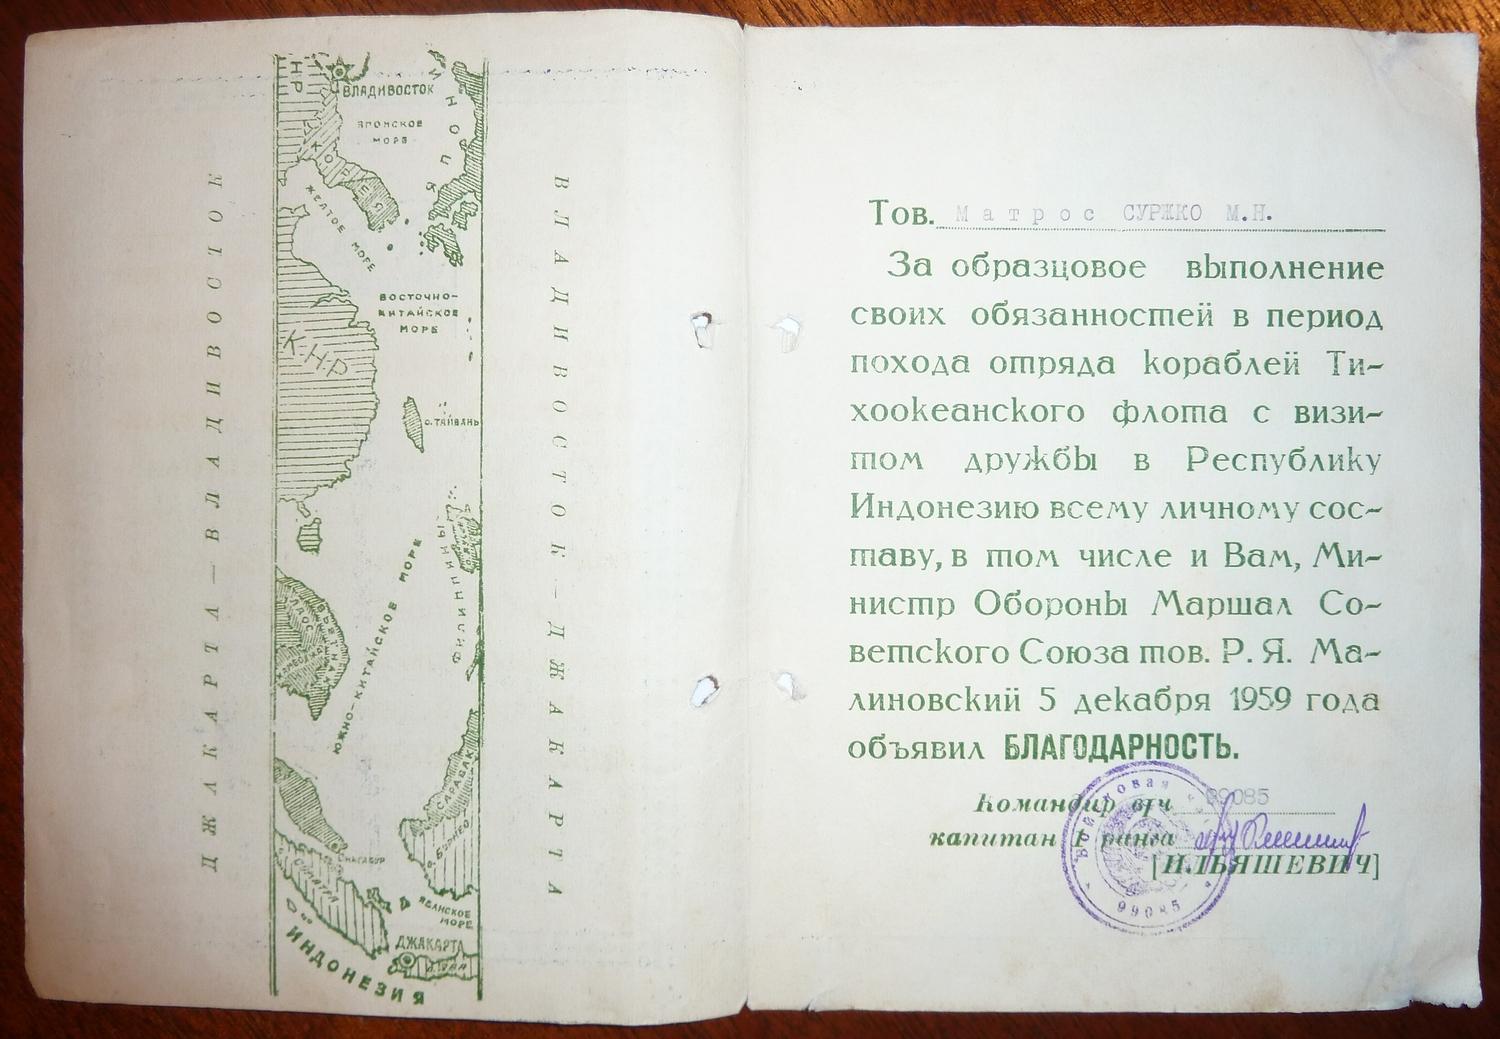 ДЖАКАРТА — ВЛАДИВОСТОК
НР
ВЛАДИВОСТОК
ЯПОНСКОЕ
МОРЕ
КОРЕЯ
ЖЕЛТОЕ МОРЕ
ВОСТОЧНО-
КИТАЙСКОЕ
МОРЕ
К.Н.Р
О.ТАЙВАНЬ
ФИЛИППИНЫ
ЮЖНО-КИТАЙСКОЕ МОРЕ
ЛАОС
ВЬЕТНАМ
САРАВАК
О. БОРНЕО
СУМАТРА
ЯВАНСКОЕ
МОРЕ
ДЖАКАРТА
ИНДОНЕЗИЯ
ВЛАДИВОСТОК — ДЖАКАРТА
Тов. Матрос СУРЖКО М.Н.
За образцовое выполнение
своих обязанностей в период
похода отряда кораблей Ти-
хоокеанского флота с визи-
том дружбы в Республику
Индонезию всему личному сос-
таву, в том числе и Вам, Ми-
нистр Обороны Маршал Со-
ветского Союза тов. Р. Я. Ма-
линовский 5 декабря 1959 года
объявил БЛАГОДАРНОСТЬ.
Командир в/ч 99085
капитан 1 ранга
[ИЛЬЯШЕВИЧ]
99085